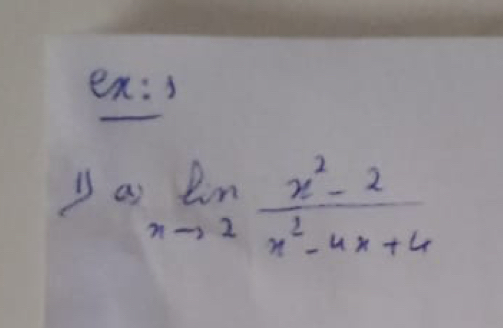 ex: 1
1) a) lim x→2 x² - 2 / x² - 4x + 4